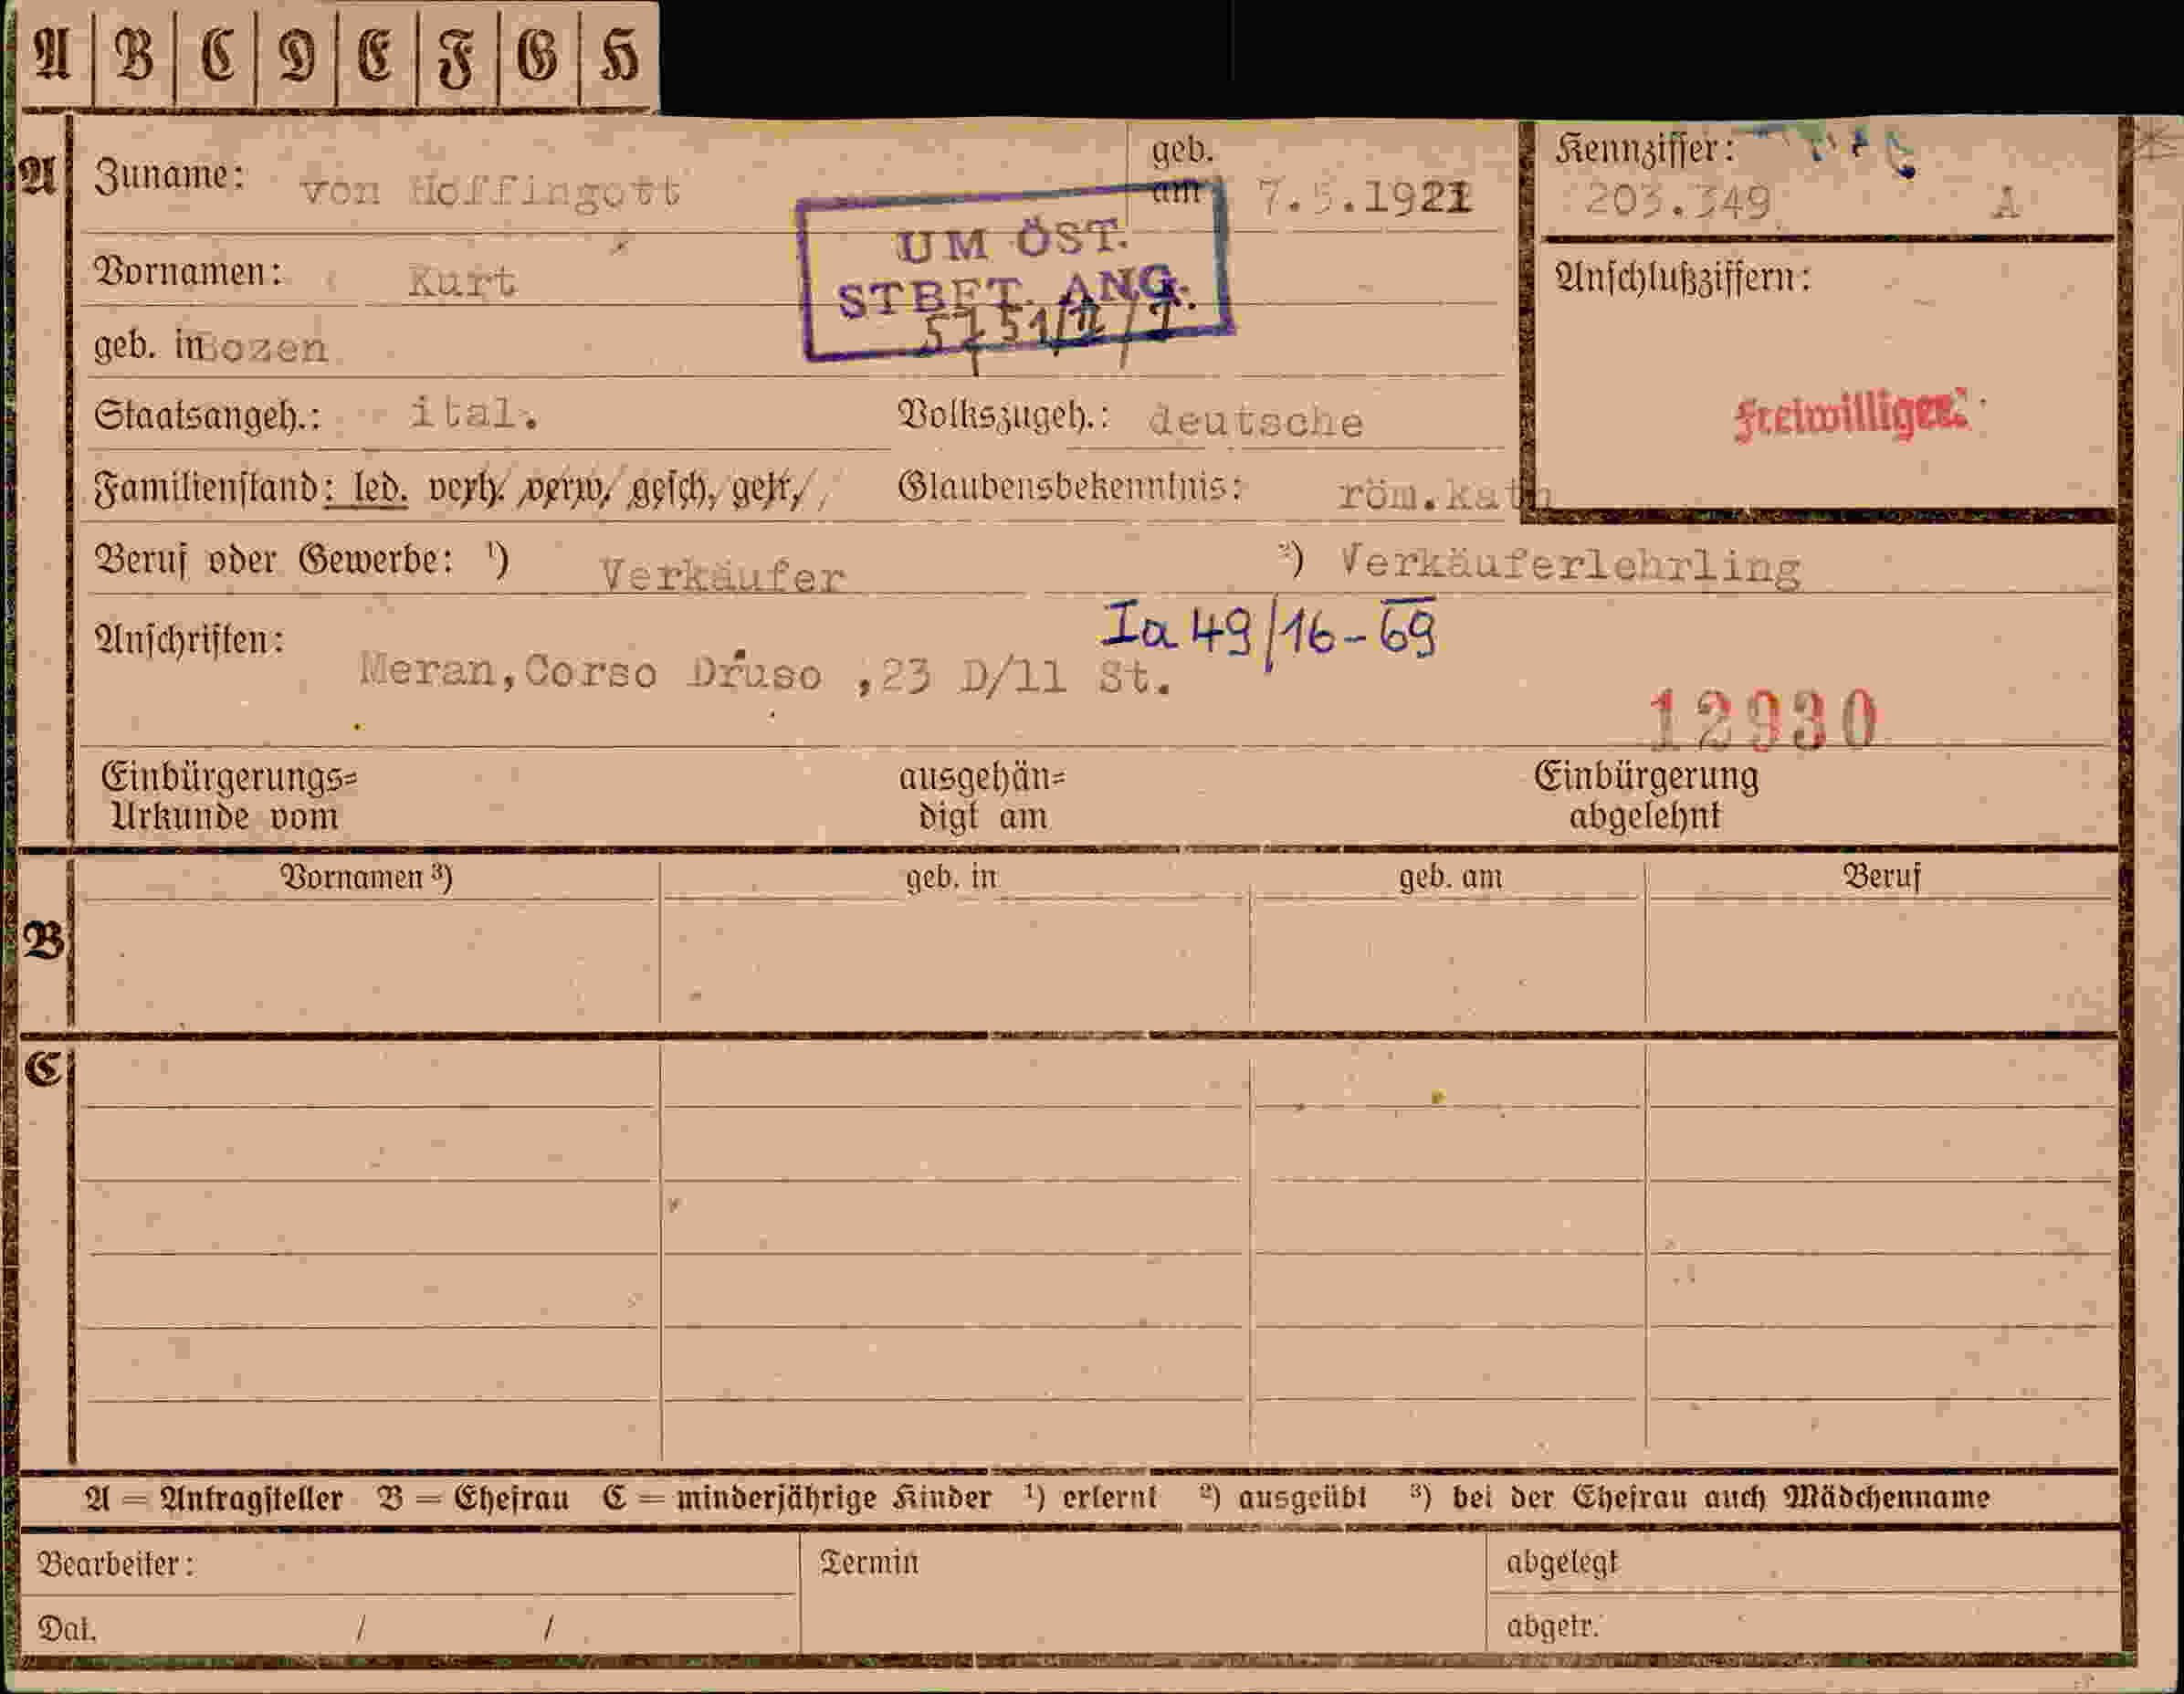 A B C D E F G H
A Zuname: von Hoffingott geb. am 7.5.1921 Kennziffer: 203.349 A
UM ÖST.
STBFT. ANG.
Vornamen: Kurt Anschlußziffern:
geb. in Bozen
Staatsangeh.: ital. Volkszugeh.: deutsche Freiwilliger.
Familienstand: led. verh. verw. gesch. getr. Glaubensbekenntnis: röm.kath
Beruf oder Gewerbe: ¹) Verkäufer ²) Verkäuferlehrling
Ia 49/16-69
Anschriften: Meran,Corso Druso ,23 D/11 St.
12930
Einbürgerungs= Urkunde vom ausgehän= digt am Einbürgerung abgelehnt
Vornamen ³) geb. in geb. am Beruf
B
C
A = Antragsteller B = Ehefrau C = minderjährige Kinder ¹) erlernt ²) ausgeübt ³) bei der Ehefrau auch Mädchenname
Bearbeiter: Termin abgelegt
Dat. / / abgetr.